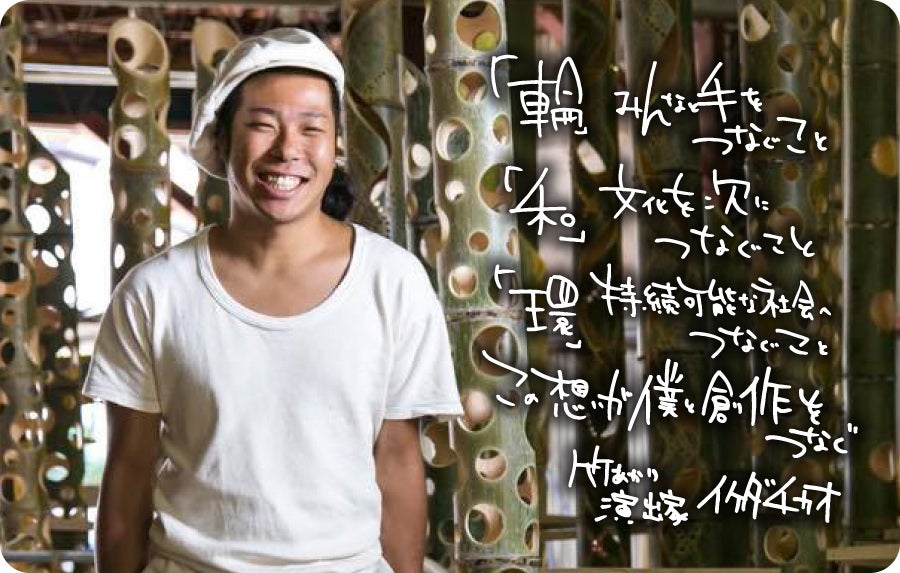 「輪」みんなと手を
つなぐこと
「和」文化を次に
つなぐこと
「環」持続可能な社会へ
つなぐこと
この想いが僕と創作を
つなぐ
竹あかり
演出家 イケダチカオ